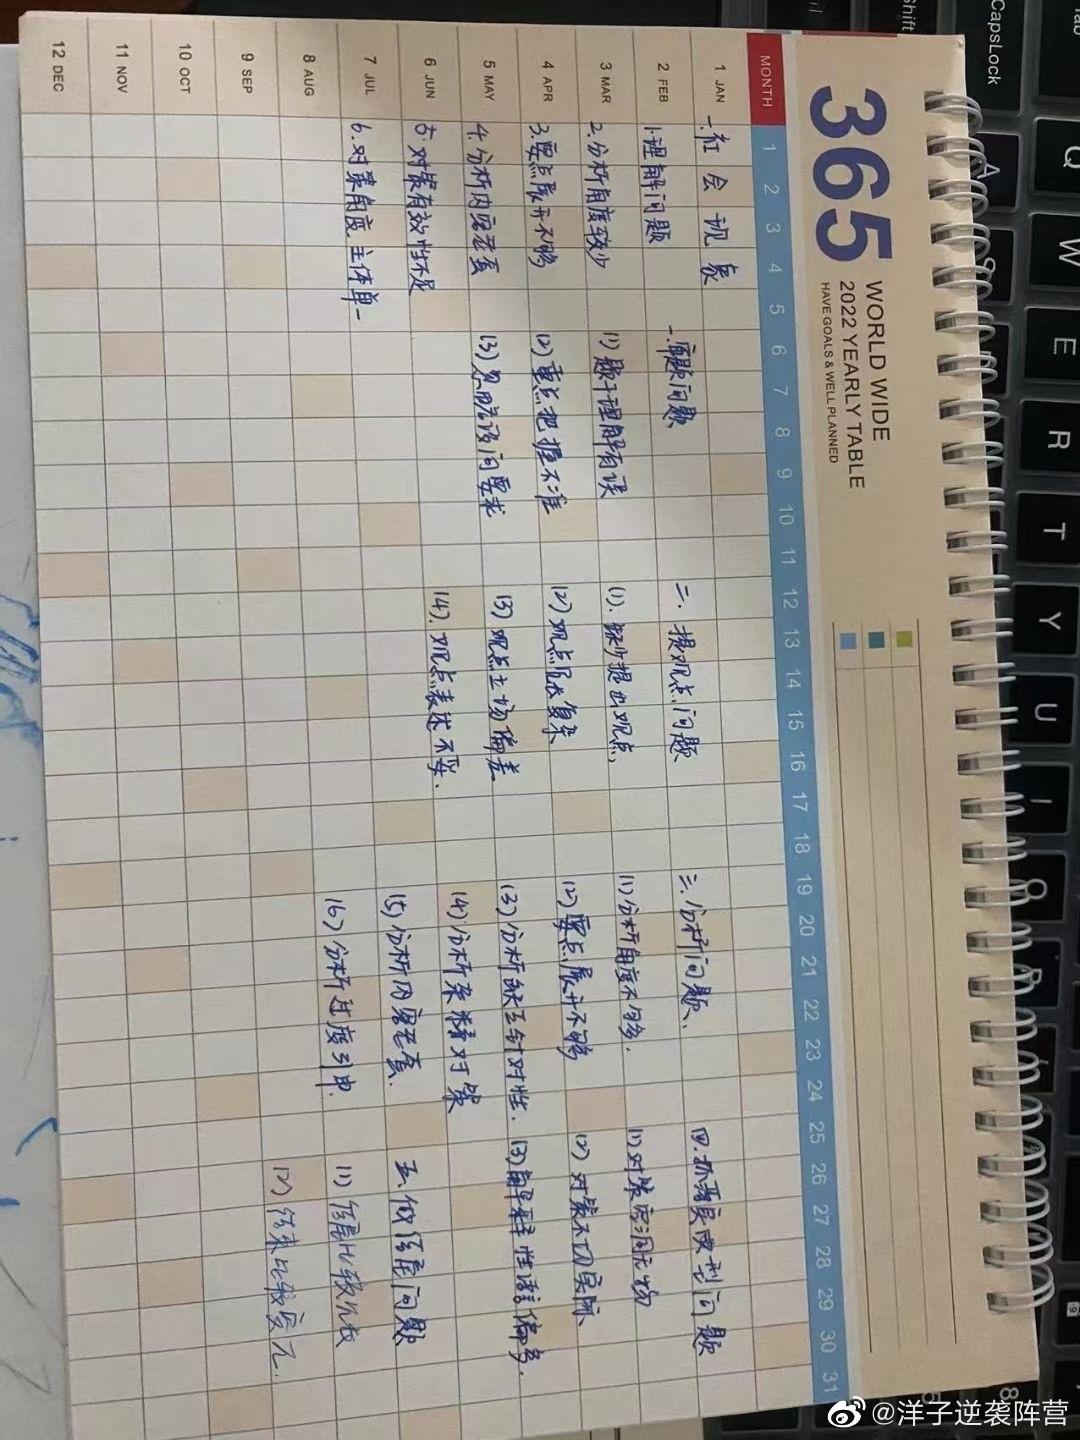 365
WORLD WIDE
2022 YEARLY TABLE
HAVE GOALS & WELL PLANNED
MONTH 1 2 3 4 5 6 7 8 9 10 11 12 13 14 15 16 17 18 19 20 21 22 23 24 25 26 27 28 29 30 31
1 JAN
2 FEB
3 MAR
4 APR
5 MAY
6 JUN
7 JUL
8 AUG
9 SEP
10 OCT
11 NOV
12 DEC
一.社会现象
1.理解问题
2.分析角度较少
3.要点展开不够
4.分析内容老套
5.对策有效性不足
6.对策角度主体单一
一.审题问题
(1)题干理解有误
(2)重点把握不准
(3)忽视设问要求
二.提观点问题
(1).缺少提出观点
(2)观点复杂
(3)观点立场偏差
(4).观点表述不妥.
三.分析问题、
(1)分析角度不够.
(2)要点展开不够
(3)分析缺乏针对性.
(4)分析杂糅对策
(5)分析内容老套.
(6)分析过度引申.
四.抓落实成型问题
(1)对策空洞无物
(2)对策不切实际、
(3)性语言偏多.
五.做结尾问题
(1)结尾比较
(2)结束比较
CapsLock
Shift
Tab
Q
W
E
R
T
Y
U
I
O
A
@洋子逆袭阵营